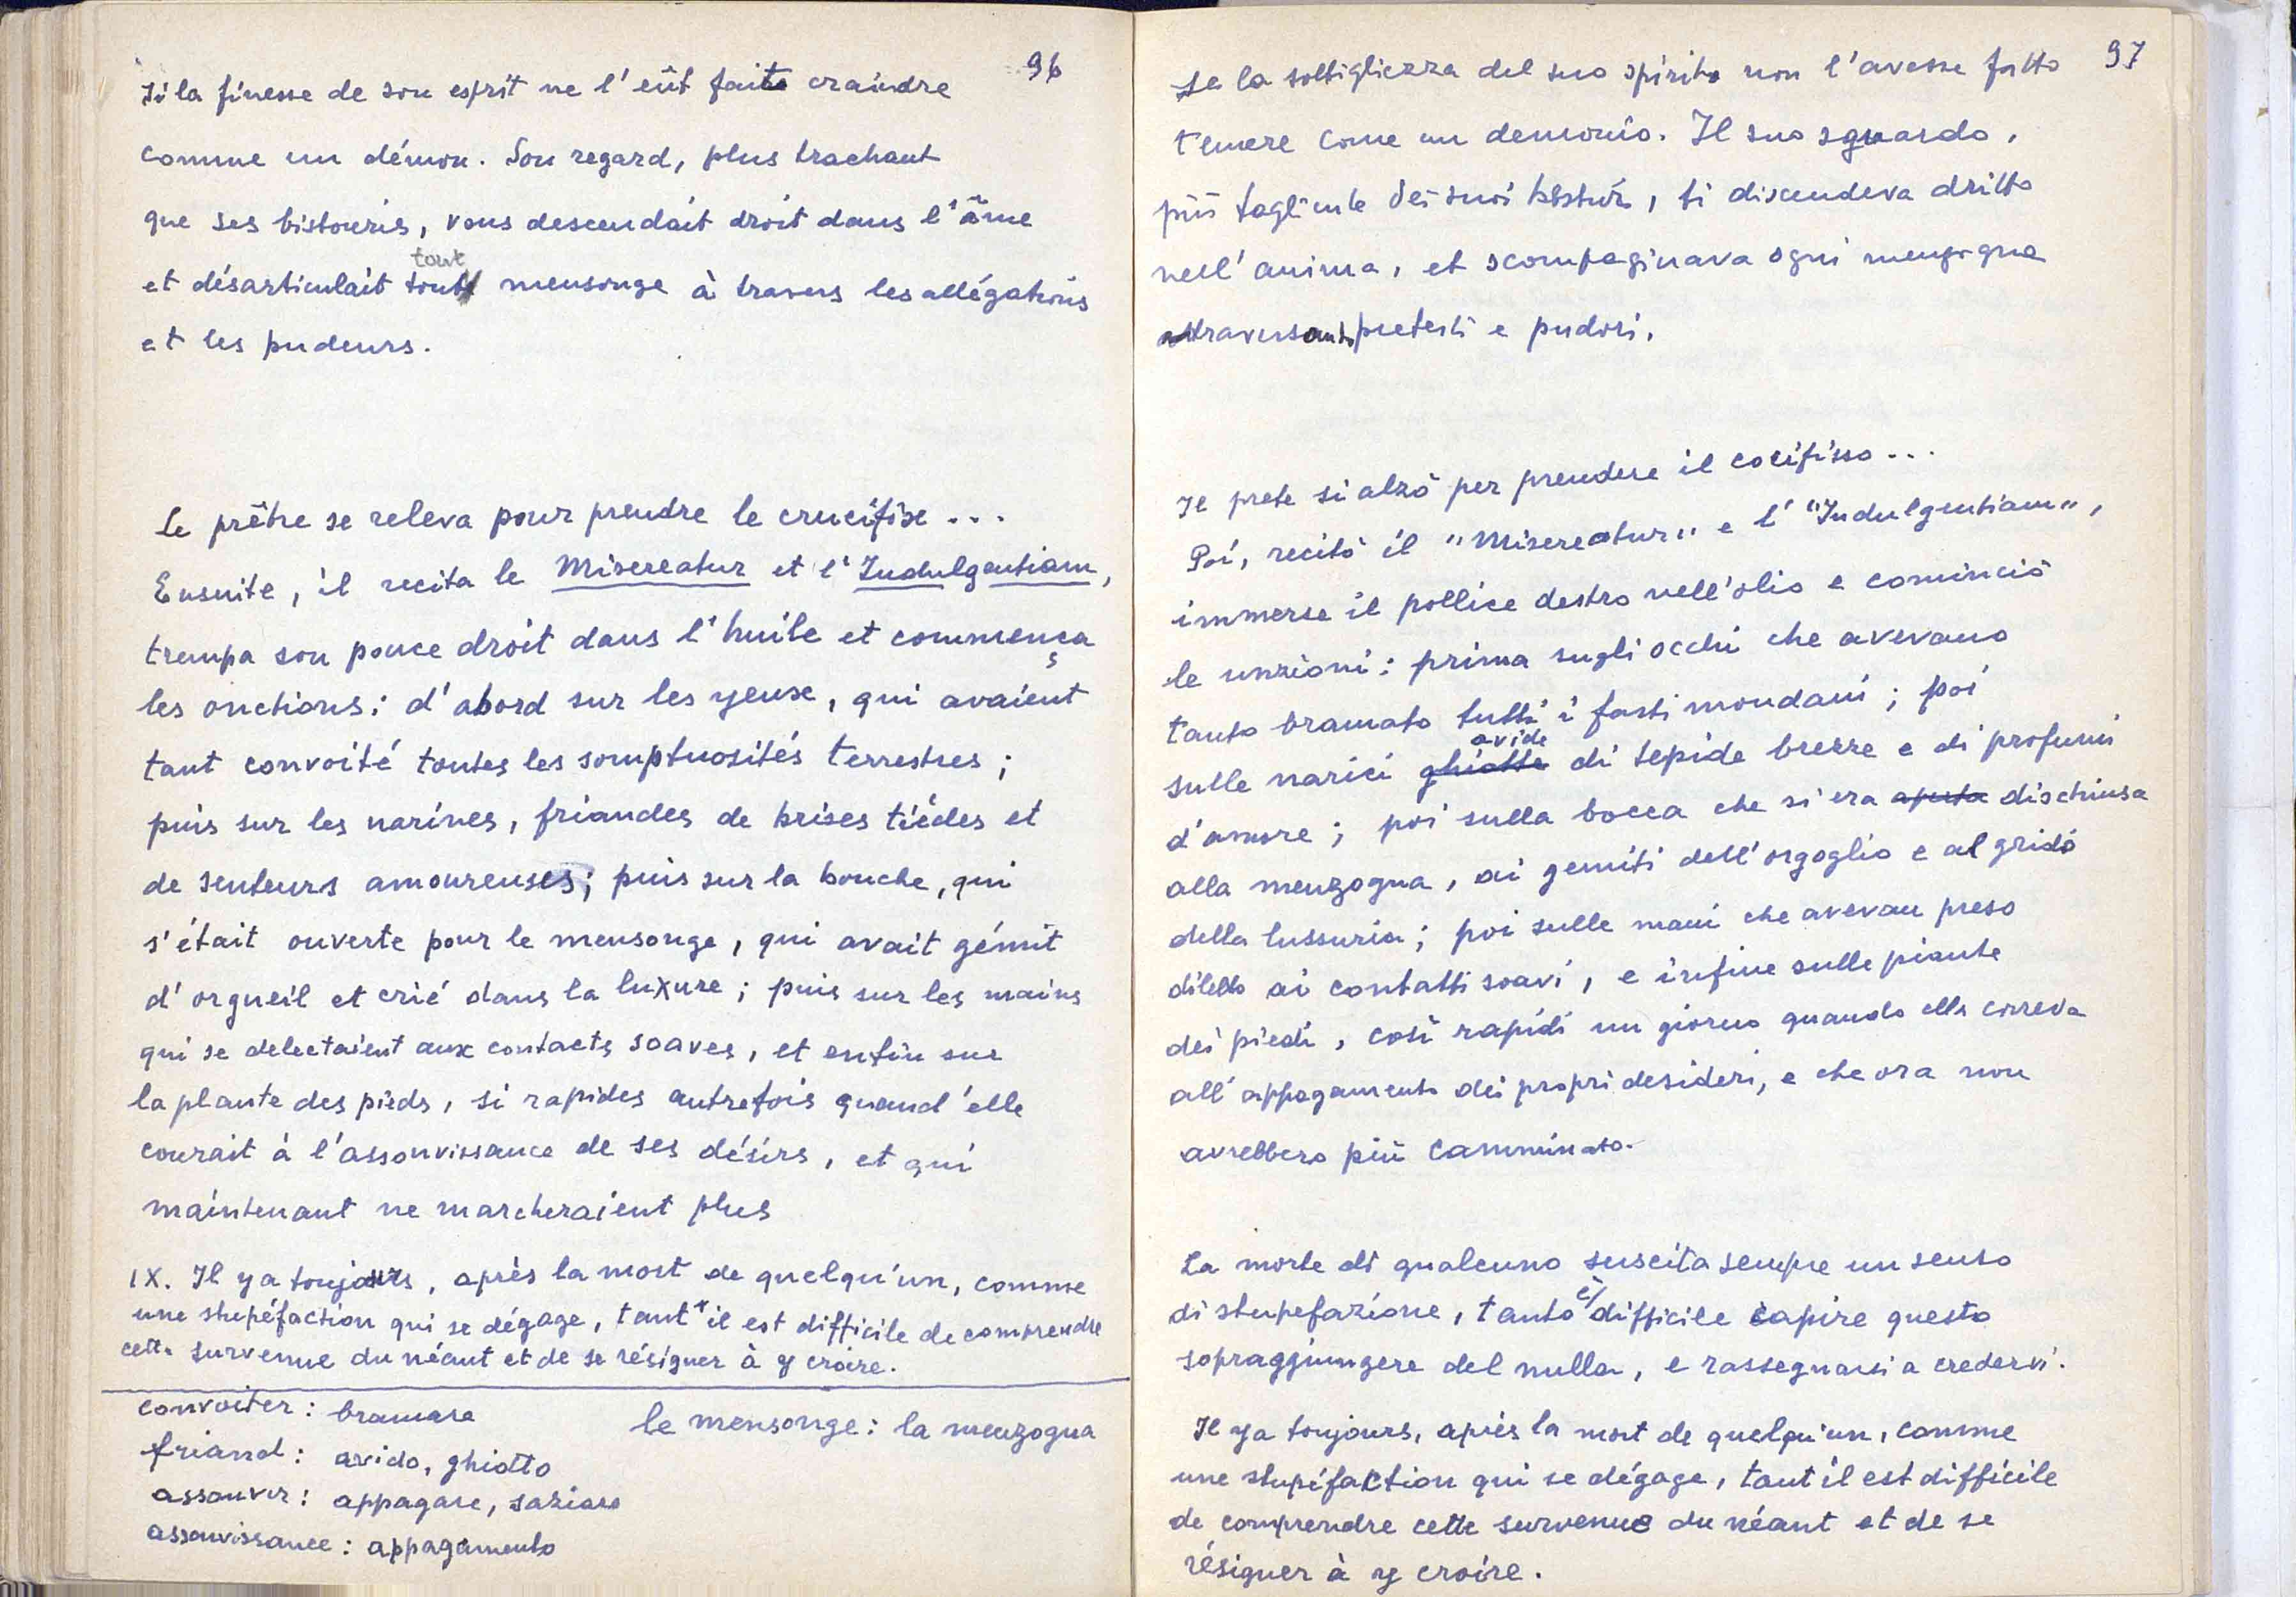 96
si la finesse de son esprit ne l'eût faite craindre
comme un démon. Son regard, plus trachant
que ses bistouris, vous descendait droit dans l'âme
tout
et désarticulait tout mensonge à travers les allégations
et les pudeurs.
Le prêtre se releva pour prendre le crucifix...
Ensuite, il recita le Misereatur et l'Indulgentiam,
trempa son pouce droit dans l'huile et commença
les onctions: d'abord sur les yeux, qui avaient
tant convoité toutes les somptuosités terrestres;
puis sur les narines, friandes de brises tièdes et
de senteurs amoureuses; puis sur la bouche, qui
s'était ouverte pour le mensonge, qui avait gémit
d'orgueil et crié dans la luxure; puis sur les mains
qui se delectaient aux contacts soaves, et enfin sur
la plante des pieds, si rapides autrefois quand'elle
courait à l'assouvissance de ses désirs, et qui
maintenant ne marcheraient plus
IX. Il y a toujours, après la mort de quelqu'un, comme
une stupéfaction qui se dégage, tant il est difficile de comprendre
cette survenue du néant et de se résigner à y croire.
convoiter: bramare
le mensonge: la menzogna
friand: avido, ghiotto
assouvir: appagare, saziare
assouvissance: appagamento
97
se la sottigliezza del suo spirito non l'avesse fatto
temere come un demonio. Il suo sguardo,
più tagliente dei suoi bisturi, ti discendeva dritto
nell'anima, et scompaginava ogni menzogna
attraverso pretesti e pudori.
Il prete si alzò per prendere il cocifisso...
Poi, recitò il "Misereatur" e l'"Indulgentiam",
immerse il pollice destro nell'olio e cominciò
le unzioni: prima sugli occhi che avevano
tanto bramato tutti i fasti mondani; poi
avide
sulle narici ghiotte di tepide brezze e di profumi
d'amore; poi sulla bocca che si era aperta dischiusa
alla menzogna, ai gemiti dell'orgoglio e al grido
della lussuria; poi sulle mani che avevan preso
diletto ai contatti soavi, e infine sulle piante
dei piedi, così rapidi un giorno quando ella correva
all'appagamento dei propri desideri, e che ora non
avrebbero più camminato.
La morte di qualcuno suscita sempre un senso
di stupefazione, tanto è difficile capire questo
sopraggiungere del nulla, e rassegnarsi a credervi.
Il y a toujours, après la mort de quelqu'un, comme
une stupéfaction qui se dégage, tant il est difficile
de comprendre cette survenue du néant et de se
résigner à y croire.